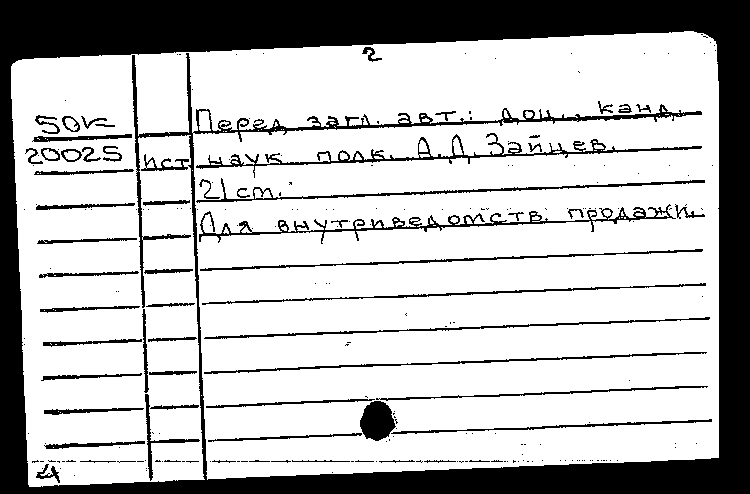 2
50к Перед загл. авт.: доц., канд.
20025 ист наук полк. А.Д. Зайцев.
21 cm.
Для внутриведомств. продажи.
4